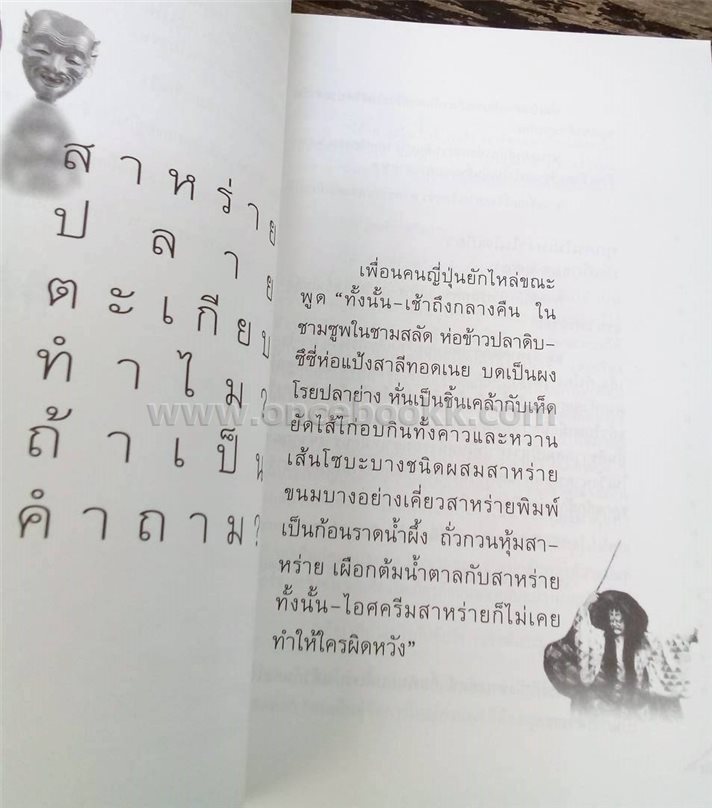 สาหร่าย
ปลาย
ตะเกียบ
ทำไม?
ถ้าเป็น
คำถาม?
เพื่อนคนญี่ปุ่นยักไหล่ขณะ
พูด “ทั้งนั้น-เช้าถึงกลางคืน ใน
ชามซูพในชามสลัด ห่อข้าวปลาดิบ-
ซึชี่ห่อแป้งสาลีทอดเนย บดเป็นผง
โรยปลาย่าง หั่นเป็นชิ้นเคล้ากับเห็ด
www.oncebookk.com
ยัดไส้ไก่อบกินทั้งคาวและหวาน
เส้นโซบะบางชนิดผสมสาหร่าย
ขนมบางอย่างเคี่ยวสาหร่ายพิมพ์
เป็นก้อนราดน้ำผึ้ง ถั่วกวนหุ้มสา-
หร่าย เผือกต้มน้ำตาลกับสาหร่าย
ทั้งนั้น-ไอศครีมสาหร่ายก็ไม่เคย
ทำให้ใครผิดหวัง”